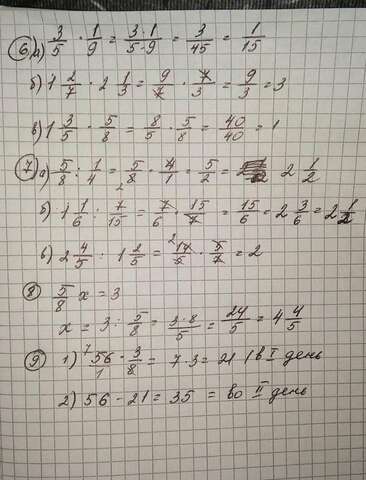 6 а) 3/5 · 1/9 = 3·1/5·9 = 3/45 = 1/15
б) 1 2/7 · 2 1/3 = 9/7 · 7/3 = 9/3 = 3
в) 1 3/5 · 5/8 = 8/5 · 5/8 = 40/40 = 1
7 а) 5/8 : 1/4 = 5/8 · 4/1 = 5/2 = 2 1/2
б) 1 1/6 : 7/15 = 7/6 · 15/7 = 15/6 = 2 3/6 = 2 1/2
в) 2 4/5 : 1 2/5 = 14/5 · 5/7 = 2
8 5/8 x = 3
x = 3 : 5/8 = 3·8/5 = 24/5 = 4 4/5
9 1) 56/1 · 3/8 = 7·3 = 21 (в I день
2) 56 - 21 = 35 = во II день